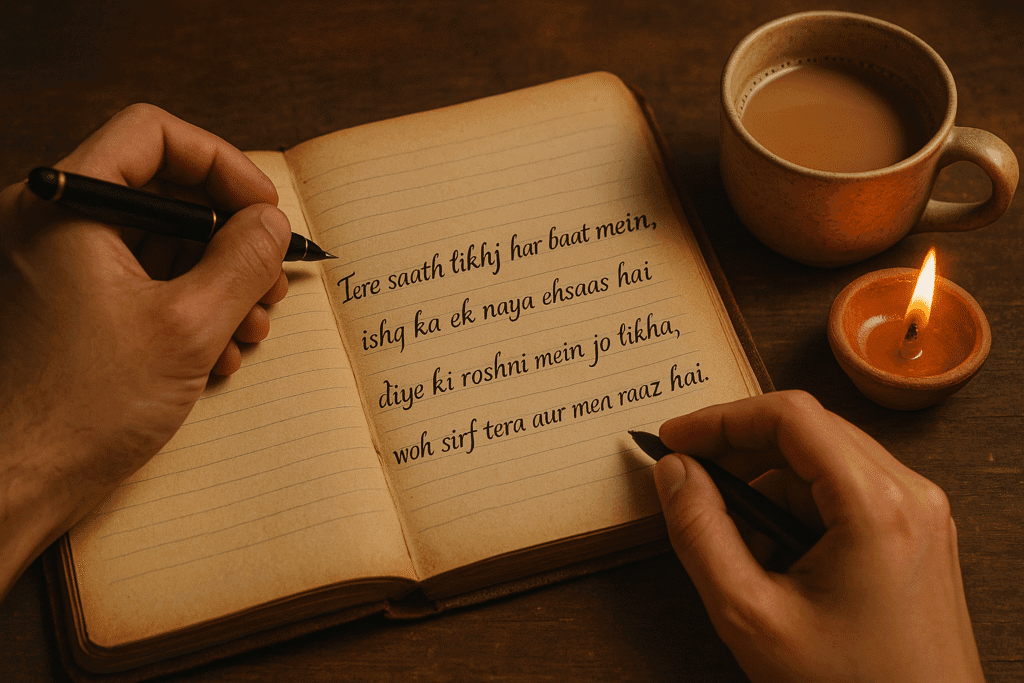 Tere saath likhj har baat mein,
ishq ka ek naya ehsaas hai
diye ki roshni mein jo likha,
woh sirf tera aur men raaz hai.